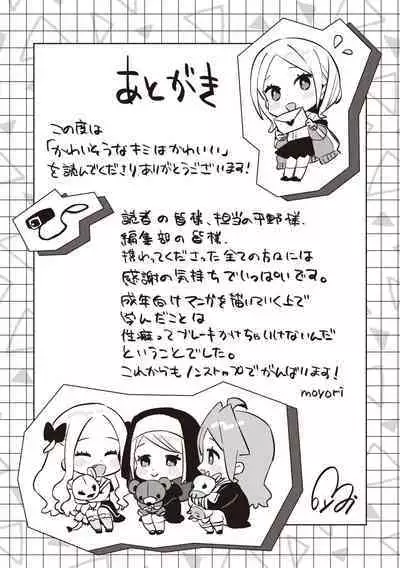 あとがき
この度は
「かわいそうなキミはかわいい」
を読んでくださりありがとうございます!
読者の皆様、担当の平野様、
編集部の皆様、
携わってくださった全ての方々には
感謝の気持ちでいっぱいです。
成年向けマンガを描いていく上で
学んだことは
性癖ってブレーキかけちゃいけないんだ
ということでした。
これからもノンストップでがんばります!
moyori